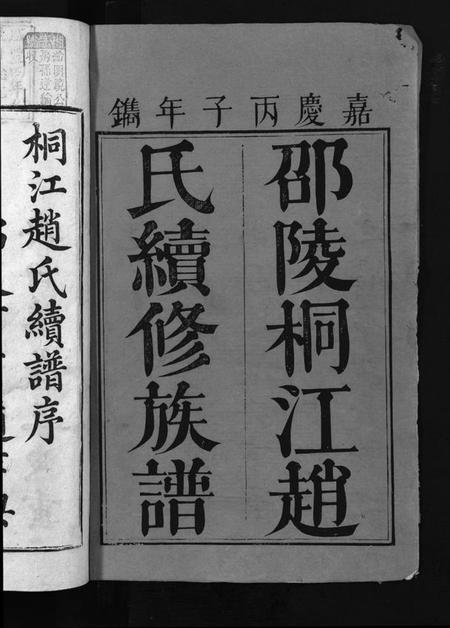 嘉慶丙子年鐫
邵陵桐江趙
氏續修族譜
桐江趙氏續譜序